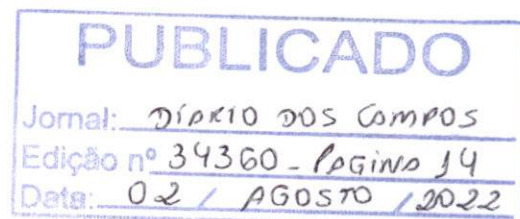 PUBLICADO
Jornal: DIARIO DOS CAMPOS
Edição nº 34360 - PAGINA 14
Data: 02 / AGOSTO / 2022